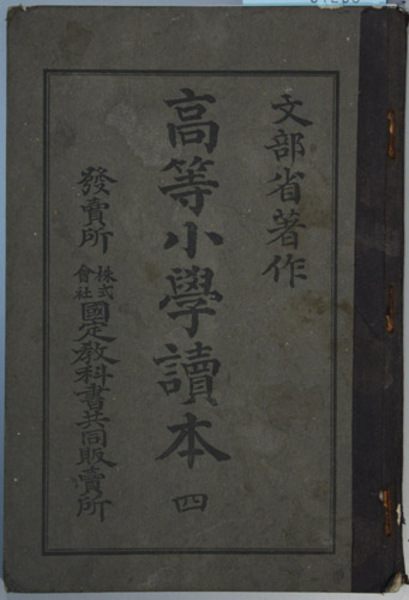 文部省著作
高等小學讀本 四
發賣所 株式會社國定教科書共同販賣所